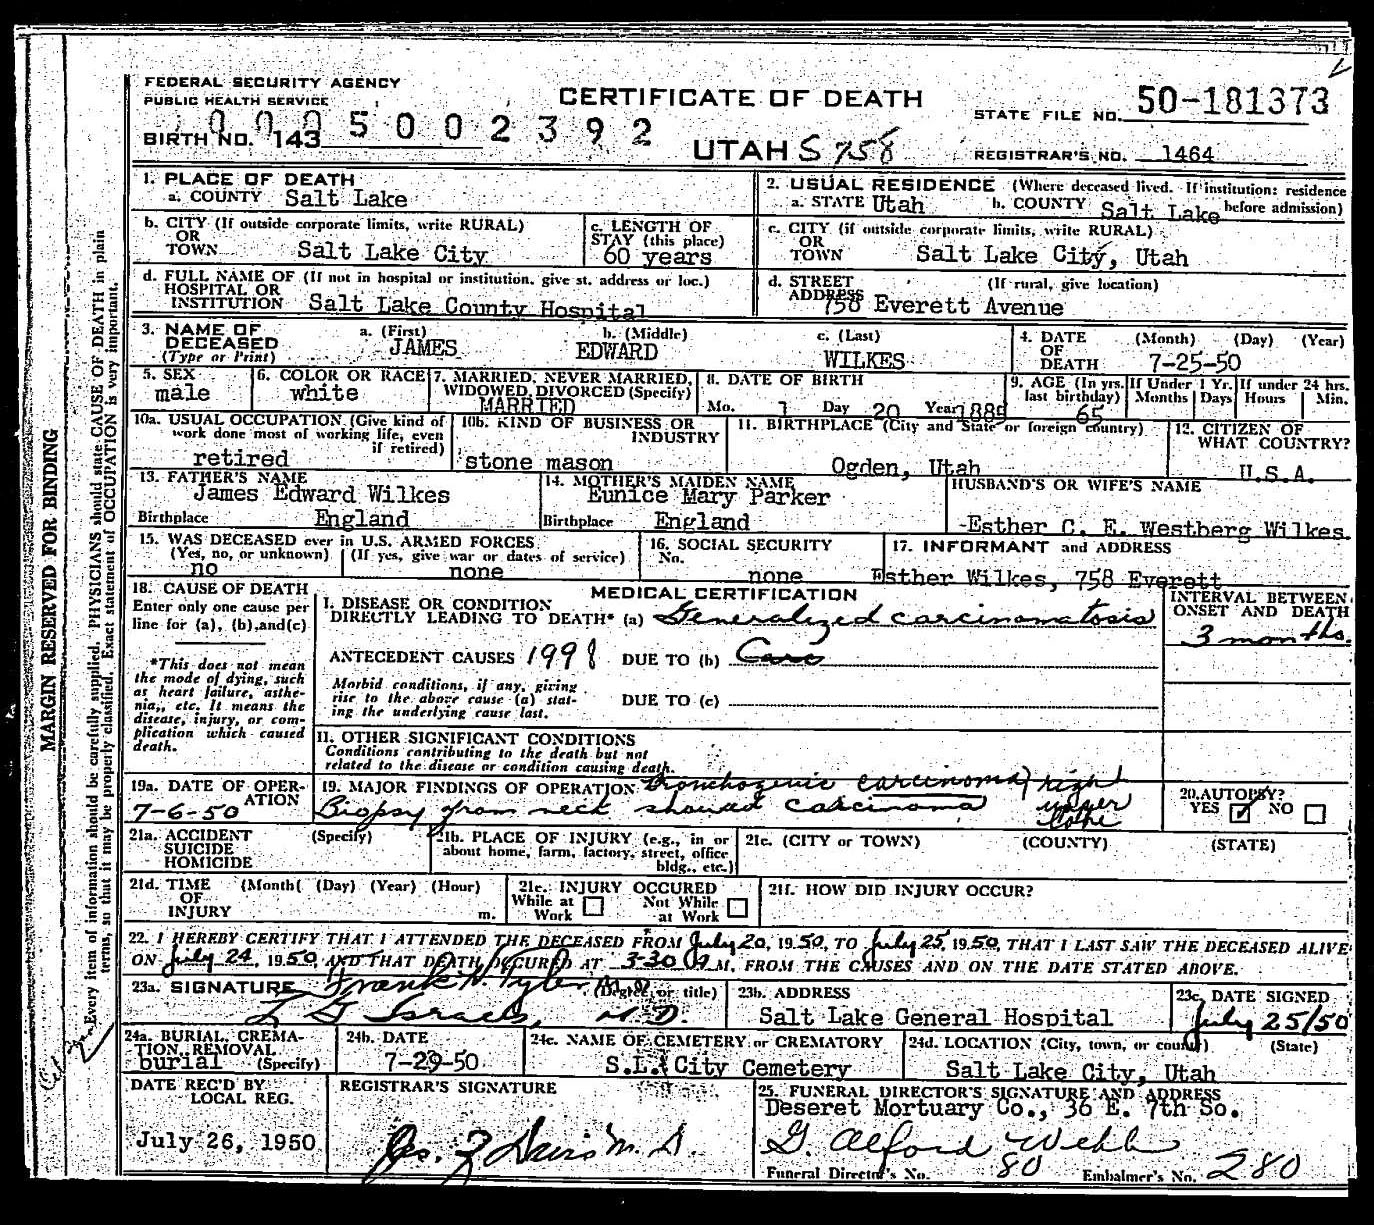 FEDERAL SECURITY AGENCY
PUBLIC HEALTH SERVICE
CERTIFICATE OF DEATH
STATE FILE NO. 50-181373
0005002392
BIRTH NO. 143
UTAH S 758
REGISTRAR'S NO. 1464
1. PLACE OF DEATH
a. COUNTY Salt Lake
2. USUAL RESIDENCE (Where deceased lived. If institution: residence before admission)
a. STATE Utah b. COUNTY Salt Lake
b. CITY (If outside corporate limits, write RURAL)
OR
TOWN Salt Lake City
c. LENGTH OF
STAY (this place)
60 years
c. CITY (if outside corporate limits, write RURAL)
OR
TOWN Salt Lake City, Utah
d. FULL NAME OF (If not in hospital or institution, give st. address or loc.)
HOSPITAL OR
INSTITUTION Salt Lake County Hospital
d. STREET (If rural, give location)
ADDRESS 758 Everett Avenue
3. NAME OF
DECEASED
(Type or Print)
a. (First) b. (Middle) c. (Last)
JAMES EDWARD WILKES
4. DATE (Month) (Day) (Year)
OF
DEATH 7-25-50
5. SEX
male
6. COLOR OR RACE
white
7. MARRIED, NEVER MARRIED,
WIDOWED, DIVORCED (Specify)
MARRIED
8. DATE OF BIRTH
Mo. 1 Day 20 Year 1885
9. AGE (In yrs. last birthday)
65
If Under 1 Yr.
Months Days
If under 24 hrs.
Hours Min.
10a. USUAL OCCUPATION (Give kind of
work done most of working life, even
if retired)
retired
10b. KIND OF BUSINESS OR
INDUSTRY
stone mason
11. BIRTHPLACE (City and State or foreign country)
Ogden, Utah
12. CITIZEN OF
WHAT COUNTRY?
U.S.A.
13. FATHER'S NAME
James Edward Wilkes
Birthplace England
14. MOTHER'S MAIDEN NAME
Eunice Mary Parker
Birthplace England
HUSBAND'S OR WIFE'S NAME
Esther C. E. Westberg Wilkes
15. WAS DECEASED ever in U.S. ARMED FORCES
(Yes, no, or unknown) (If yes, give war or dates of service)
no none
16. SOCIAL SECURITY
No.
none
17. INFORMANT and ADDRESS
Esther Wilkes, 758 Everett
18. CAUSE OF DEATH
Enter only one cause per
line for (a), (b), and (c)
*This does not mean
the mode of dying, such
as heart failure, asthe-
nia, etc. It means the
disease, injury, or com-
plication which caused
death.
MEDICAL CERTIFICATION
I. DISEASE OR CONDITION
DIRECTLY LEADING TO DEATH* (a) Generalized carcinomatosis
INTERVAL BETWEEN
ONSET AND DEATH
3 months.
ANTECEDENT CAUSES 1991 DUE TO (b) Carc
Morbid conditions, if any, giving
rise to the above cause (a) stat-
ing the underlying cause last.
DUE TO (c)
II. OTHER SIGNIFICANT CONDITIONS
Conditions contributing to the death but not
related to the disease or condition causing death.
Bronchogenic carcinoma, high
upper
lobe
19a. DATE OF OPER-
ATION
7-6-50
19. MAJOR FINDINGS OF OPERATION
Biopsy from neck showed carcinoma
20. AUTOPSY?
YES ☑ NO ☐
21a. ACCIDENT (Specify)
SUICIDE
HOMICIDE
21b. PLACE OF INJURY (e.g., in or
about home, farm, factory, street, office
bldg., etc.)
21c. (CITY or TOWN) (COUNTY) (STATE)
21d. TIME (Month) (Day) (Year) (Hour)
OF
INJURY m.
21e. INJURY OCCURED
While at Work ☐ Not While at Work ☐
21f. HOW DID INJURY OCCUR?
22. I HEREBY CERTIFY THAT I ATTENDED THE DECEASED FROM July 20, 1950, TO July 25, 1950, THAT I LAST SAW THE DECEASED ALIVE
ON July 24, 1950, AND THAT DEATH OCCURED AT 3-30 A M., FROM THE CAUSES AND ON THE DATE STATED ABOVE.
23a. SIGNATURE Frank H. Tyler (Degree or title)
L G Israels, M.D.
23b. ADDRESS
Salt Lake General Hospital
23c. DATE SIGNED
July 25/50
24a. BURIAL, CREMA-
TION, REMOVAL
burial (Specify)
24b. DATE
7-29-50
24c. NAME OF CEMETERY or CREMATORY
S.L. City Cemetery
24d. LOCATION (City, town, or county) (State)
Salt Lake City, Utah
DATE REC'D BY
LOCAL REG.
July 26, 1950
REGISTRAR'S SIGNATURE
Davis M.D.
25. FUNERAL DIRECTOR'S SIGNATURE AND ADDRESS
Deseret Mortuary Co., 36 E. 7th So.
G. Alford Webb
Funeral Director's No. 80 Embalmer's No. 280
MARGIN RESERVED FOR BINDING
Every item of information should be carefully supplied. PHYSICIANS should state CAUSE OF DEATH in plain
terms, so that it may be properly classified. Exact statement of OCCUPATION is very important.